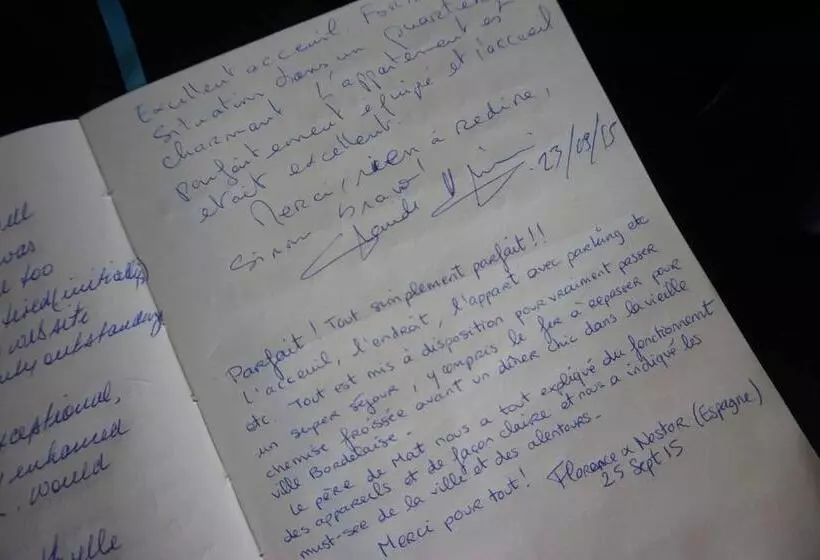 ell
was
too
tired (initially)
website
outstanding
exceptional,
enhanced
would
Excellent acceuil.
Situation dans un quartier
charmant. L'appartement est
parfaitement equipé et l'accueil
etait excellent.
Merci, rien à redire,
sinon bravo!
23/09/15
Parfait! Tout simplement parfait!!
L'acceuil, l'endroit, l'appart avec parking etc
etc. Tout est mis à disposition pour vraiment passer
un super séjour, y compris le fer à repasser pour
chemise froissée avant un dîner chic dans la vieille
ville Bordelaise.
Le père de Mat nous a tout expliqué du fonctionnement
des appareils et de façon claire et nous a indiqué les
must-see de la ville et des alentours.
Merci pour tout! Florence & Nestor (Espagne)
25 Sept 15